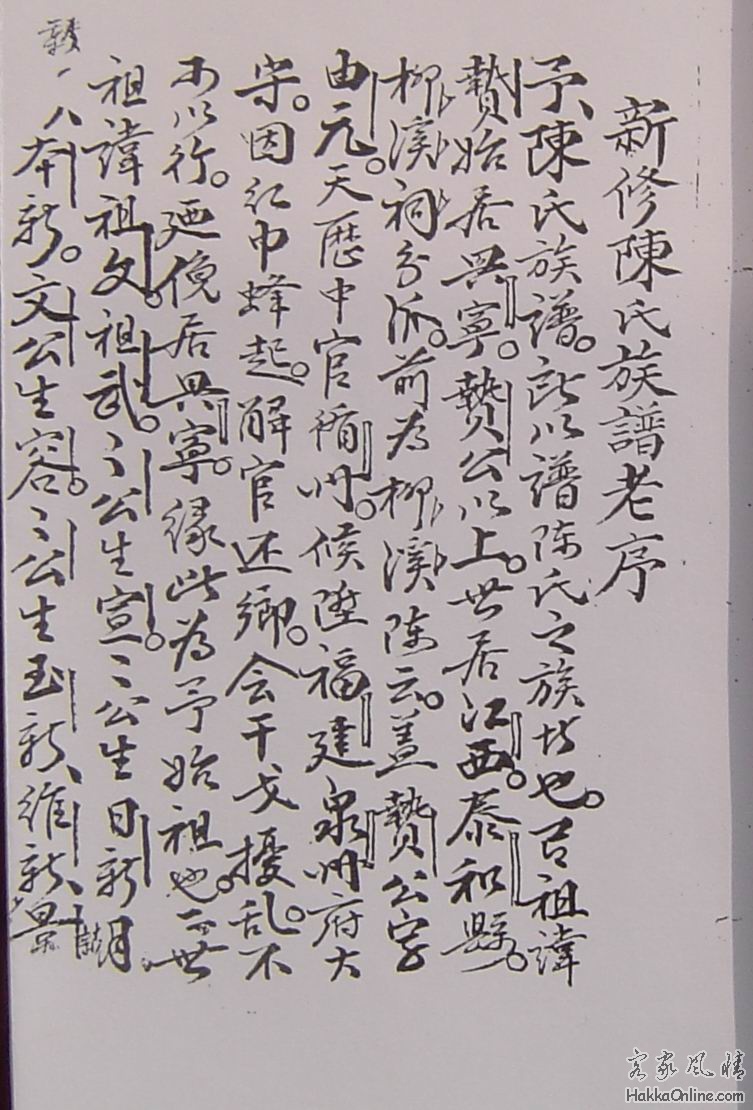 新修陳氏族譜老序
予陳氏族譜。所以譜陈氏之族せ也。吾祖諱
贄始居興寧。贄公以上。世居江西。泰和縣。
柳溪祠分派。前為柳溪陈云。盖贄公字
由元。天歷中官循州。候陞福建泉州府大
守。因红巾蜂起。解官还鄉。会干戈擾乱。不
可以行。廼俛居興寧。缘此為予始祖也。二世
祖諱祖文。祖武。〻公生宣。〻公生日新 月胡
八本新。文公生容。〻公生玉新、維新、景
客家風情
HakkaOnline.com